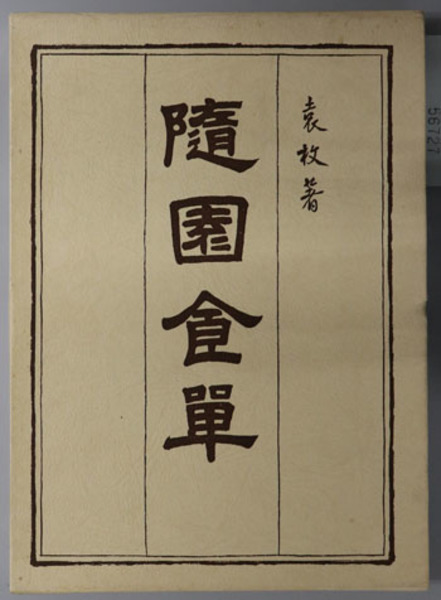 袁枚著
隨園食單
56127